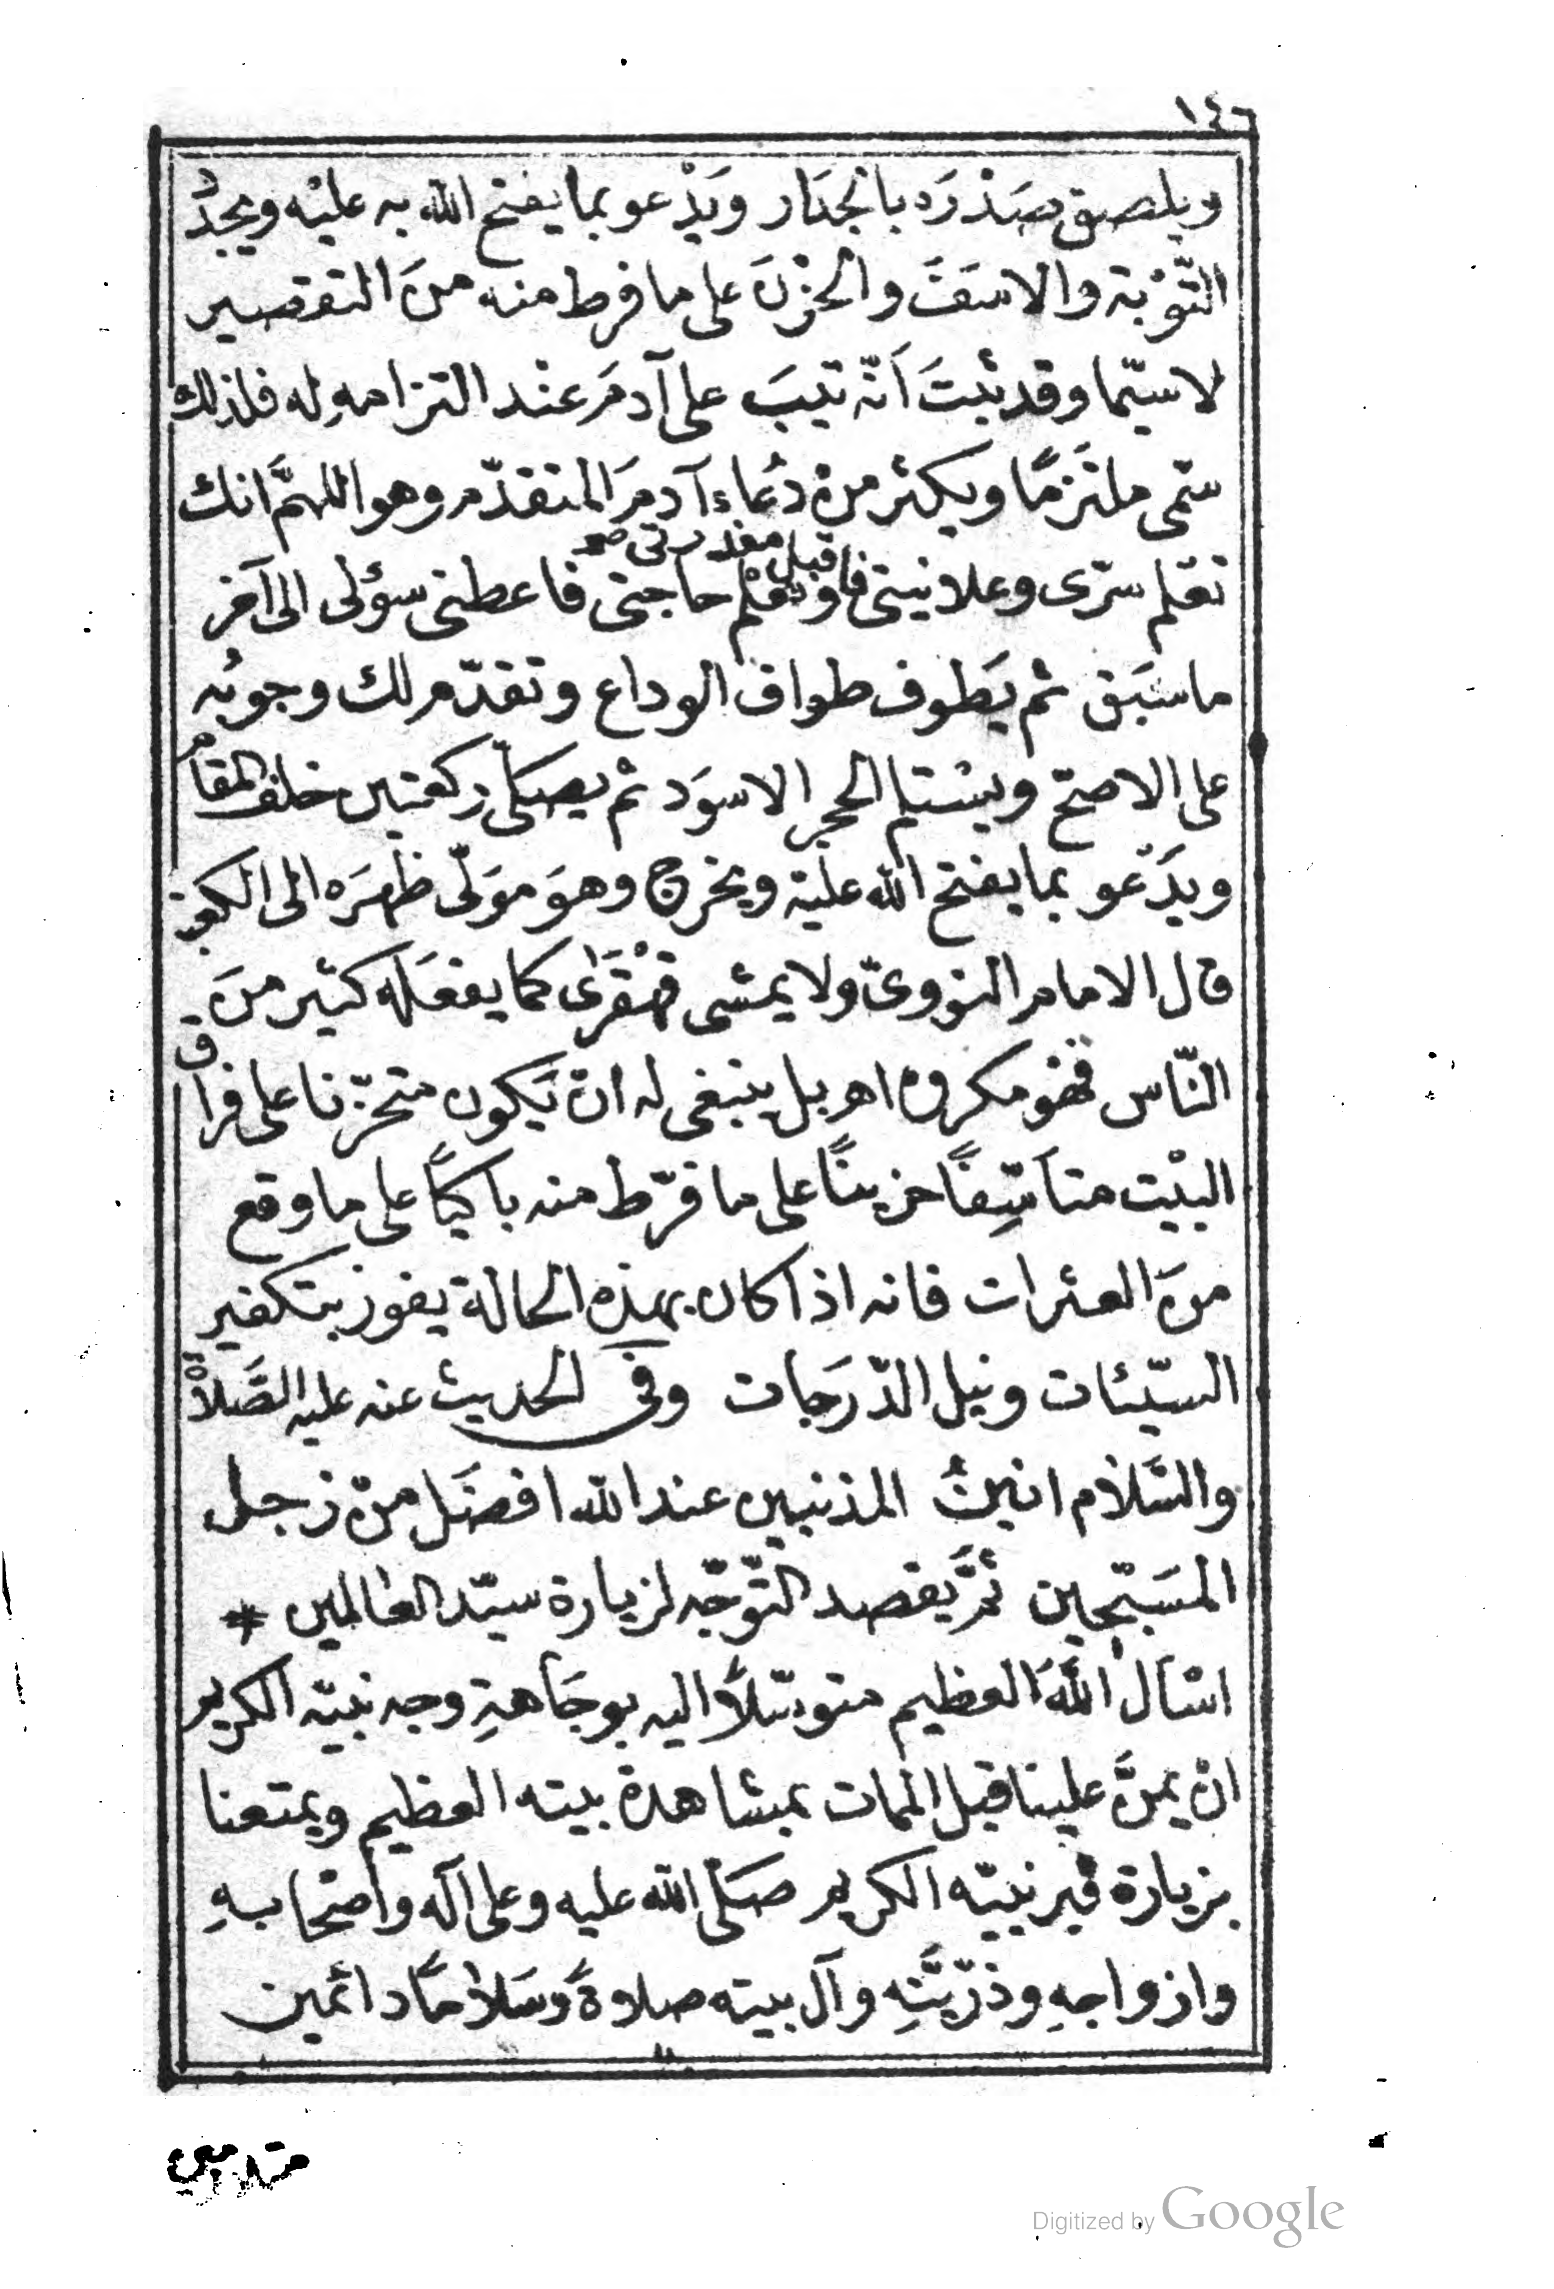 ١٤٦
ويلصق صَدْرَه بالجدَار ويَدْعو بما يفتح الله به عليْه ويجدّد
التّوْبة والاسَفَ والحزْنَ على ما فرط منه منَ التقصير
لاسيّما وقد ثبتَ اَنّه تيبَ على آدمَ عنْد التزامهِ له فلذلك
سمّى ملتَزمًا ويكثر منْ دعَاء آدمَ المتقدّم وهو اللهمَّ انك
تعْلم سرّى وعلانيتى فاقبل معذرتى صح وتعْلم حاجتى فاعطنى سؤلى الى آخر
ما سبَق ثم يَطوف طواف الوداع وتقدّم لك وجوبُه
على الاصحّ ويسْتلم الحجر الاسوَد ثم يصَلّى ركعتين خلف المقام
ويدَعْو بما يفتح الله عليْه ويخرج وهوَ موَلّى ظهرَه الى الكعبة
قال الامام النووىّ ولا يمشى قهْقَرٰى كما يفعَله كثير منَ
النّاس فهْو مكروه اهـ بل ينبغى له انْ يَكون متحزّنا على فراق
البيْت متاَسّفًا حزينًا على ما فرّط منه باكيًا على ما وقع
منَ العثرات فانه اذا كان بهذه الحالة يفوز بتكفير
السيّئات ونيل الدّرَجات وفى الحديث عنه عليه الصَّلاةُ
والسَّلام انينُ المذنبين عند الله افضَل منْ زجل
المسَبّحين ثمَّ يقصد التّوَجّه لزيارة سيّد العالمين *
اسْاَلُ اللهَ العظيم متوسّلًا اليه بوجَاهةِ وجه نبيّه الكريم
انْ يمنَّ علينا قبل الممات بمشاهدة بيته العظيم ويمتعنا
بزيارة قبر نبيّه الكريم صَلّى الله عليه وعلى آله واصحَابهِ
وازواجهِ وذرّيَّتهِ وآل بيته صلاوةً وسَلامًا دائمين
متلازمين
Digitized by Google